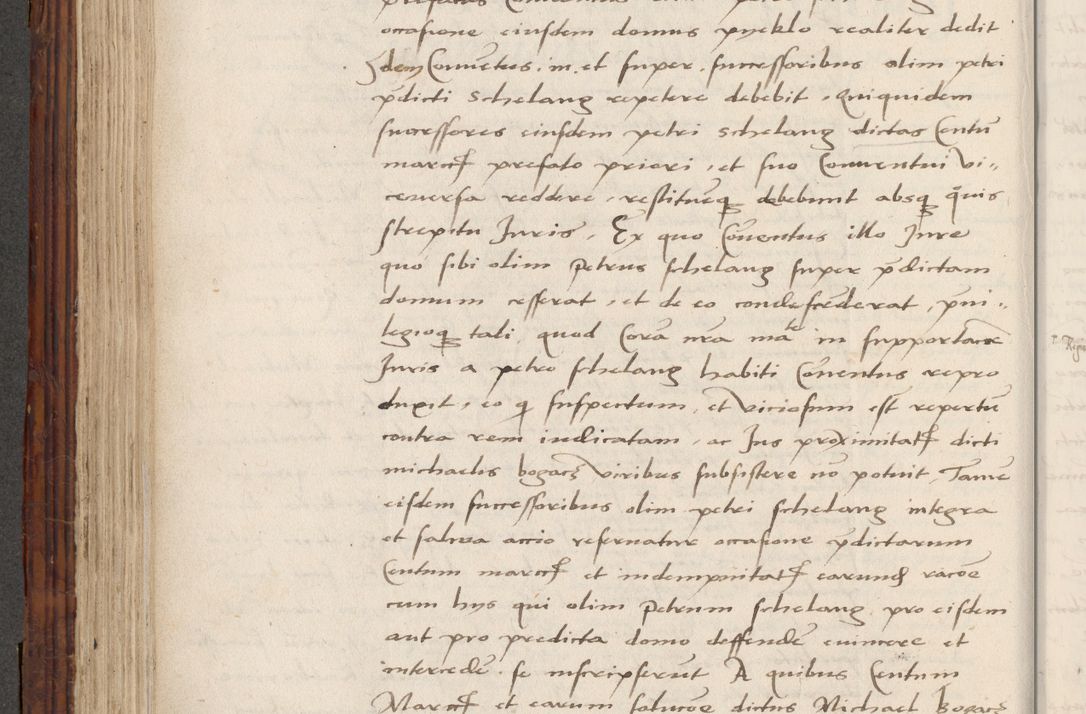 occasione eiusdem domus pyeklo realiter dedit
Idem Conventus in et super successoribus olim petri
p̄dicti Schelang repetere debebit, Quiquidem
successores eiusdem petri Schelang dictas Centū
marcꝭ prefato priori, et suo Conventui Vi„
ceversa reddere, restituereqꝫ debebunt absqꝫ q̄uis
strepitu Iuris, Ex quo Cōventus illo Iure
quo sibi olim Petrus schelang super p̄dictam
domum cesserat, et de eo condescēderat, p̄ui„
legioqꝫ tali, quod Corā nrā mate in supportacōe
Iuris a petro schelang habiti Cōventus repro
duxit, eo qꝫ suspectum, et Viciosum est repertū
contra rem iudicatam, ac Ius proximitatꝭ dicti
michaelis bogacz Viribus subsistere nō potuit, Tamē
eisdem successoribus olim petri schelang integra
et salva accio reservatur occasione p̄dictarum
Centum marcꝭ et indempnitatꝭ earundē racōe
cum hys qui olim Petrum schelang pro eisdem
aut pro predicta domo deffendē evincere et
intercedē se inscripserūt A quibus Centum
Marcꝭ et earum solucōe dictus Michael Bogacz